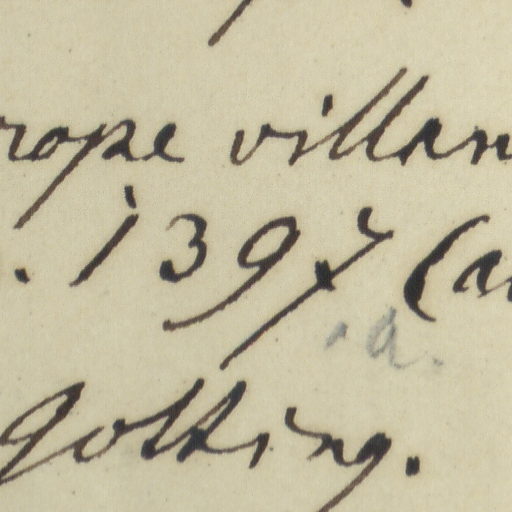 rope villam
. 1397 (a
a.
Gotting.